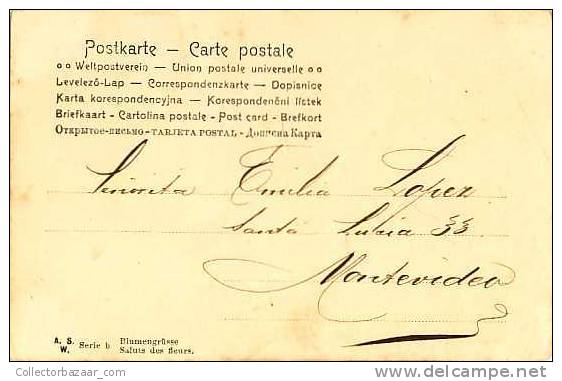 Postkarte — Carte postale
Weltpostverein — Union postale universelle
Levelező-Lap — Correspondenzkarte — Dopisnice
Karta korespondencyjna — Korespondenčni listek
Briefkaart - Cartolina postale - Post card - Brefkort
Открытое-письмо - TARJETA POSTAL - Дописна Карта
Señorita Emilia Lopez
Santa Lucia 33
Montevideo
A. S. W. Serie b Blumengrüsse
Saluts des fleurs.
CollectorBazaar.com
delcampe.net